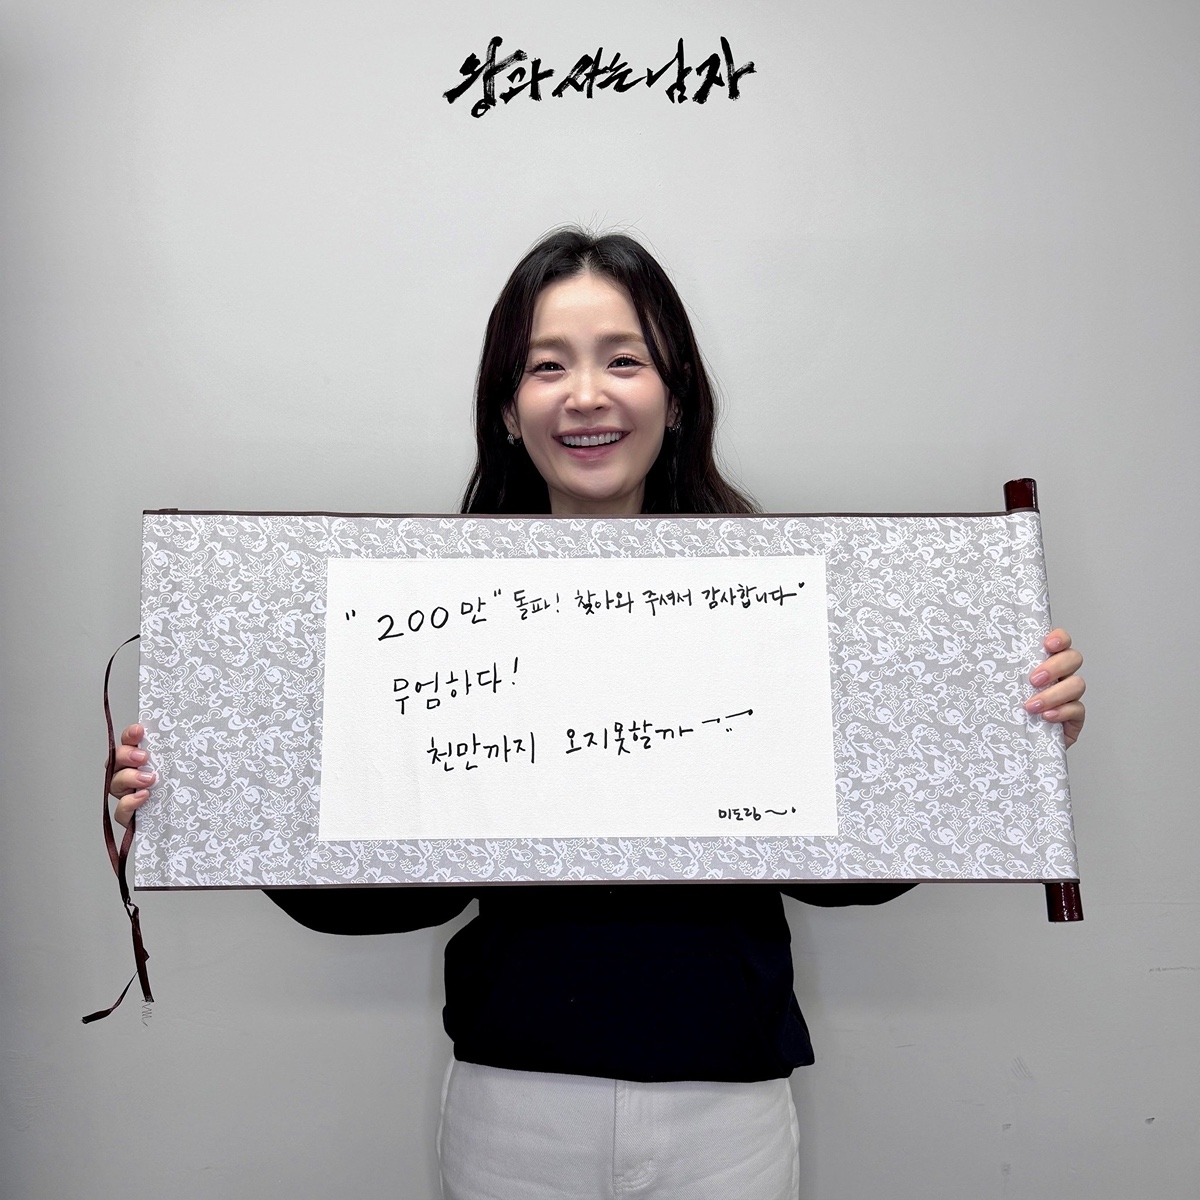 왕과 사는 남자
"200만" 돌파! 찾아와 주셔서 감사합니다♥
무엄하다!
천만까지 오지못할까
미도랑~